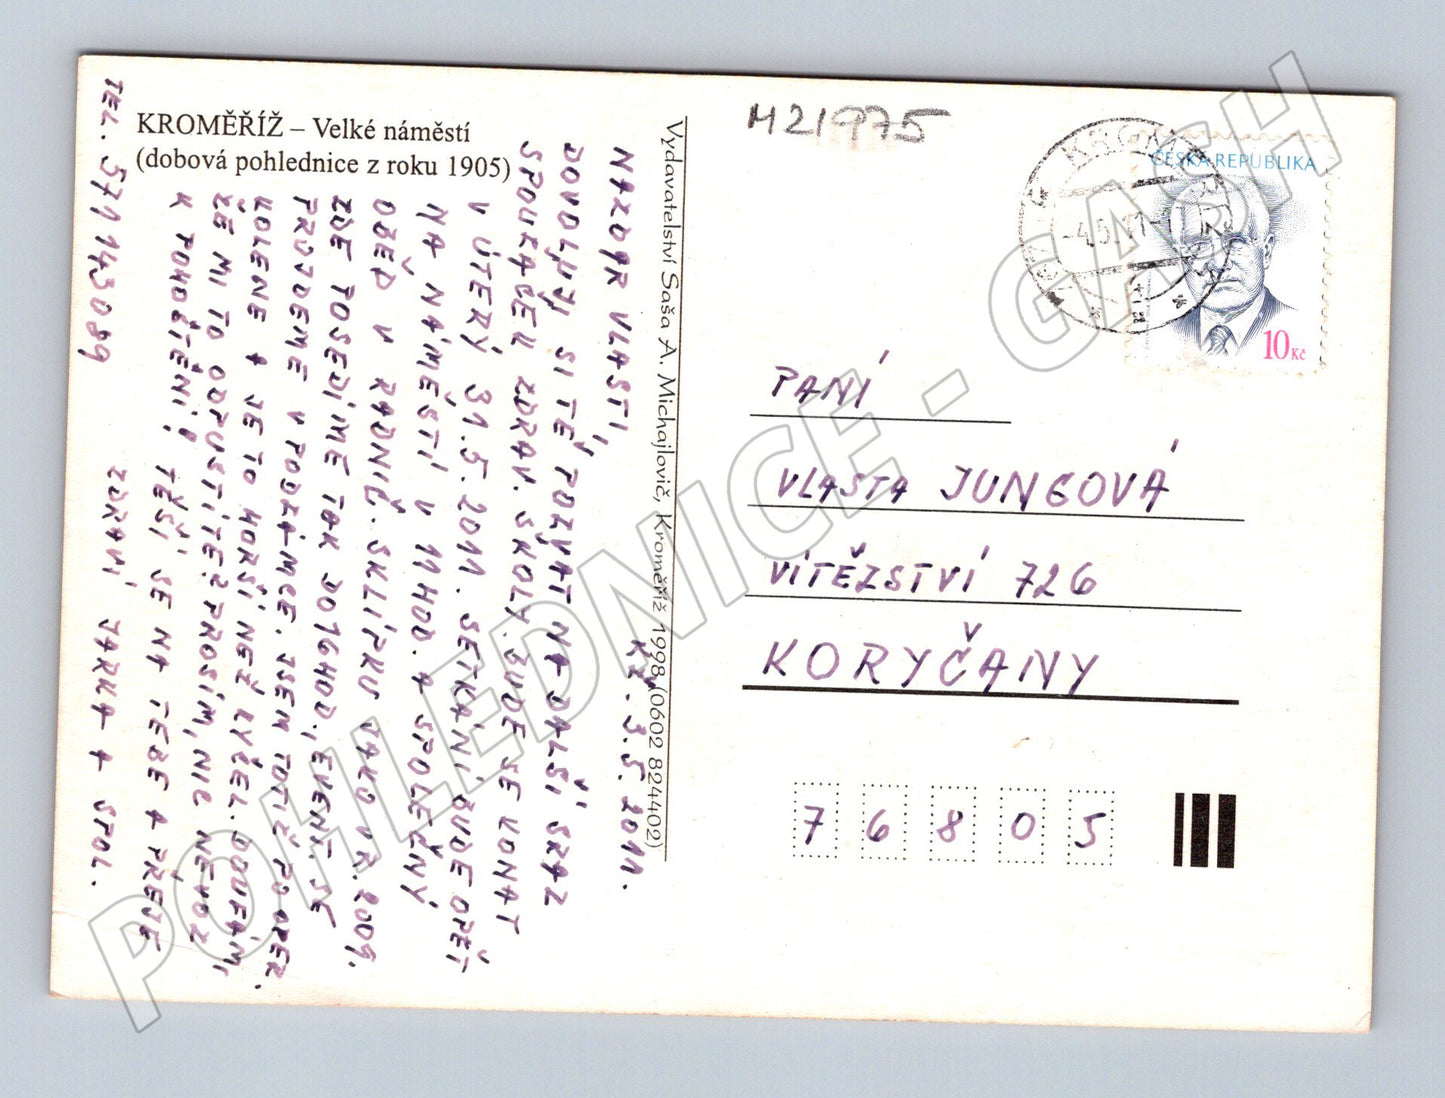 KROMĚŘÍŽ – Velké náměstí
(dobová pohlednice z roku 1905)
KŘ. 3.5.2011.
NAZDAR VLASTI,
DOVOLUJI SI TĚ POZVAT NA DALŠÍ SRAZ
SPOLUŽAČEK ZDRAV. ŠKOLY. BUDE SE KONAT
V ÚTERÝ 31.5.2011. SETKÁNÍ BUDE OPĚT
NA NÁMĚSTÍ V 11HOD. A SPOLEČNÝ
OBĚD V RADNIČ. SKLÍPKU JAKO V R. 2009.
ZDE POSEDÍME TAK DO 16HOD., EVENT. SE
PROJDEME V PODZÁMCE. JSEM TOTIŽ PO OPER.
KOLENE A JE TO HORŠÍ NEŽ KYČEL. DOUFÁM,
ŽE MI TO ODPUSTÍTE. PROSÍM, NIC NEVOZ
K POHOŠTĚNÍ! TĚŠÍ SE NA TEBE A PŘEJE
ZDRAVÍ JARKA A SPOL.
TEL. 571143089
Vydavatelství Saša A. Michajlovič, Kroměříž 1998 (0602 824402)
M21975
-4.5.11-
ČESKÁ REPUBLIKA
10 Kč
PANÍ
VLASTA JUNGOVÁ
VÍTĚZSTVÍ 726
KORYČANY
7 6 8 0 5
POHLEDNICE - GASH